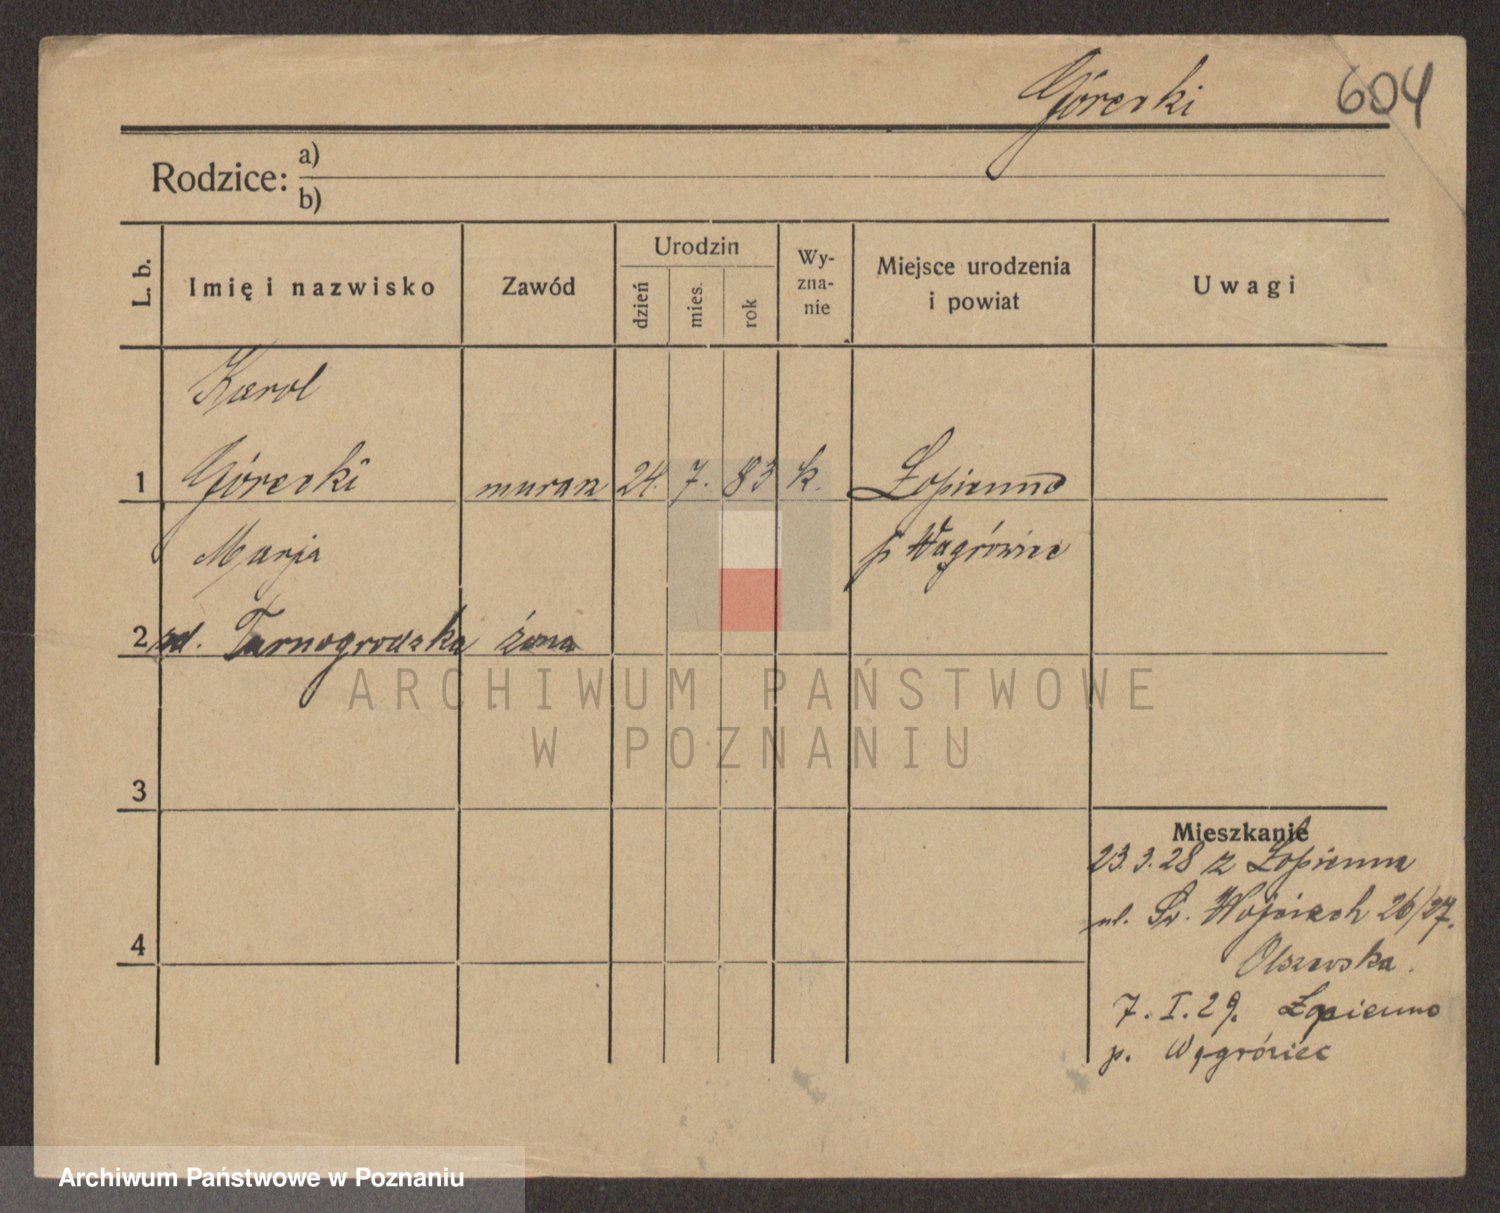 Górecki 604
Rodzice: a)
b)
L. b. Imię i nazwisko Zawód Urodzin dzień mies. rok Wy-zna-nie Miejsce urodzenia i powiat Uwagi
Karol
1 Górecki murarz 24. 7. 83 k. Łopienno
Marja p Wągrówiec
2 zd. Tarnogrodzka żona
ARCHIWUM PAŃSTWOWE
W POZNANIU
3
Mieszkanie
23.3.28 z Łopienna
ul. Św. Wojciech 26/27.
4 Olszewska.
7. I. 29. Łopienno
p. Wągrówiec
Archiwum Państwowe w Poznaniu